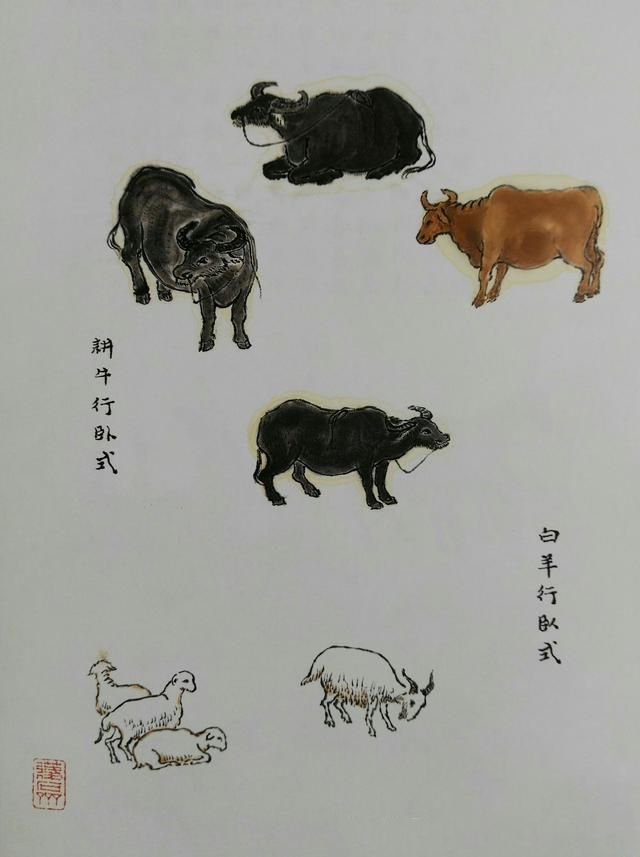 耕牛行卧式
白羊行卧式